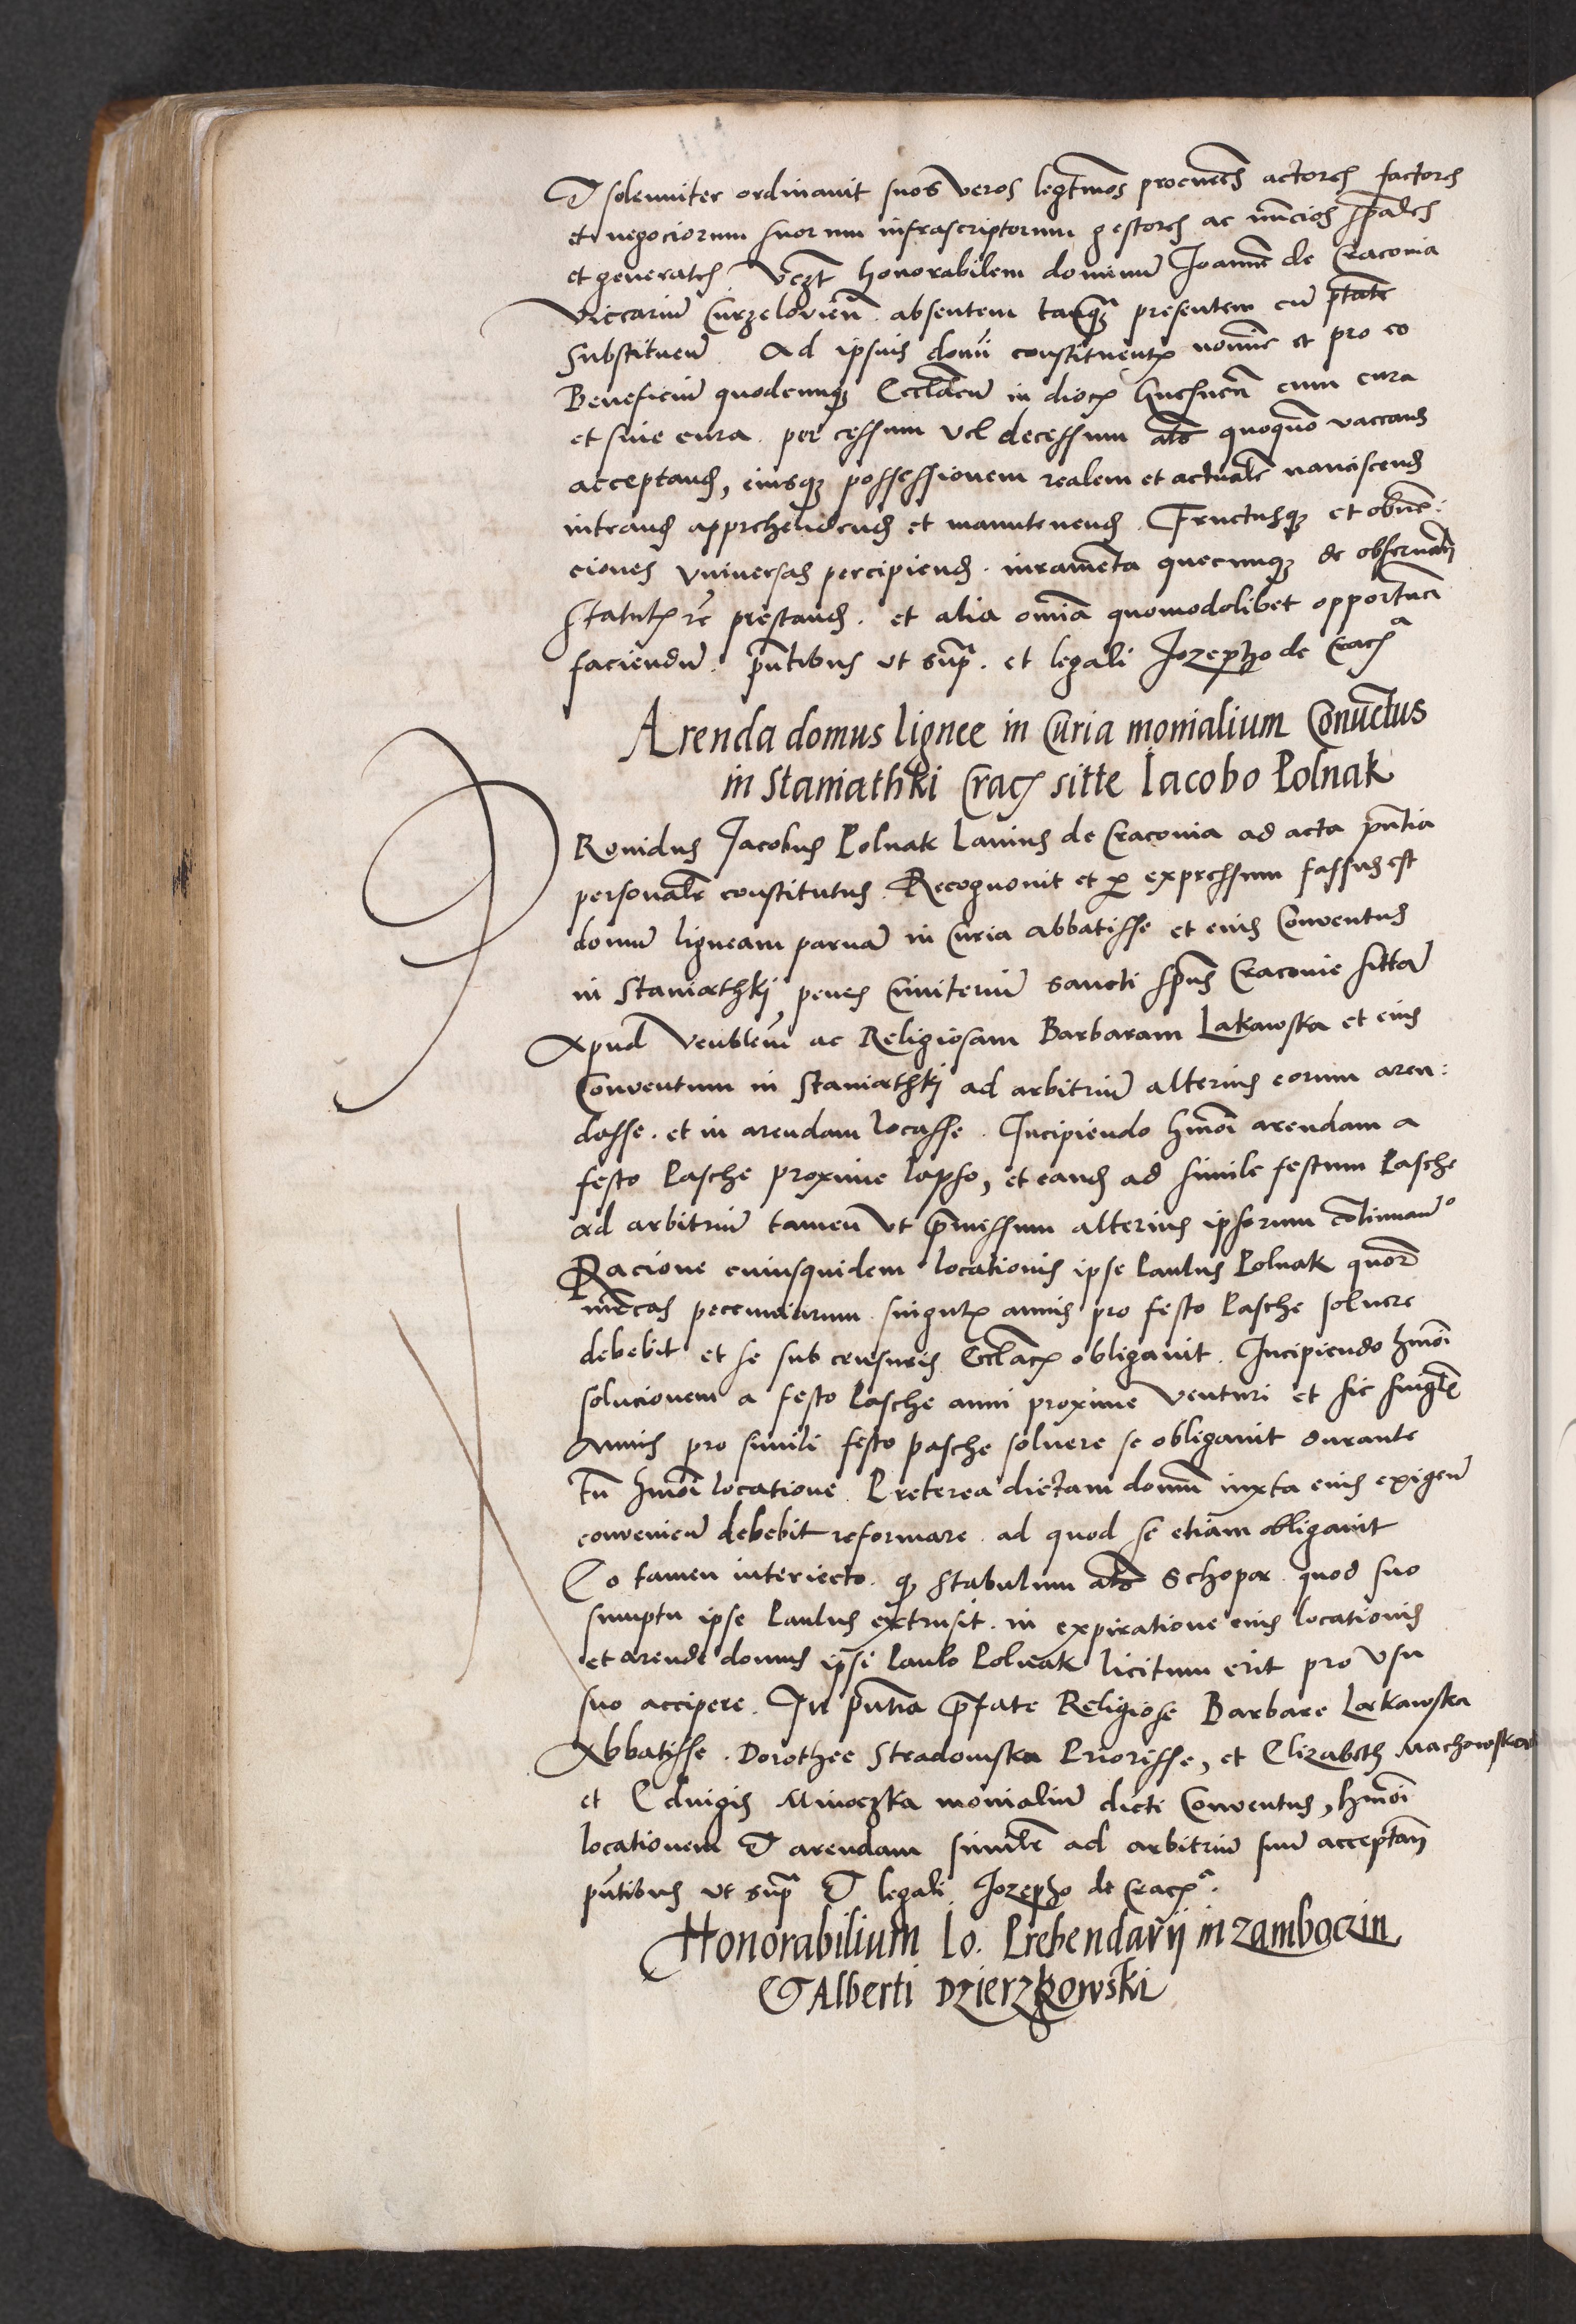 et solenniter ordinavit suos veros legtimos procuratores actores factores
et negociorum suorum infrascriptorum gestores ac nuncios spāles
et generales. Vcz honorabilem dominū Joannē de Cracovia
Viccariū Curzelovieñ. absentem tanq̃ presentem cū ptāte
Substituendi. Ad ipsius domī constituentis nomīe et pro eo
Beneficiū quodcumq; Ecclāticū in dioc. Gnesneñ cum cura
et sine cura. per cessum vel decessum als quoquōo vaccans
acceptand, eiusq; possessionem realem et actualē nanciscend
intrand apprehendend et manutenend. Fructusq; et obvē:
ciones vniversas percipiend. iuramēta quecumq; de observādis
statutis rē prestand. et alia omīa quomodolibet opportuna
faciendū. pñtibus ut supra. et legali Jozepho de Crac.ᵃ
Arenda domus lignee in Curia monialium Conuctus
in Staniathki Crac. sitte Jacobo Polnak
PRovidus Jacobus Polnak Lanius de Cracovia ad acta pñtia
personalr̄ constitutus. Recognovit et p̱ expressum fassus est
domū ligneam parvā in Curia abbatisse et eius Conventus
in Staniathkj penes Cimiteriū sancti spūs Cracovie sittā
Apud Venblem ac Religiosam Barbaram Lakawska et eius
Conventum in Staniathkj ad arbitriū alterius eorum aren:
dasse. et in arendam locasse. Incipiendo hmōi arendam a
festo Pasche proxime lapso, et eand ad simile festum Pasche
ad arbitriū tamen ut p̄missum alterius ipsorum cōtinuandº
Racione cuiusquidem locationis ipse Paulus Polnak quatuor
mr̄cas pecuniarum singulis annis pro festo Pasche solvere
debebit et se sub censuris Ecclācis obligavit. Incipiendo hmōi
solucionem a festo Pasche anni proxime Venturi et sic singlis
Annis pro simili festo pasche solvere se obligavit durante
tn̄ hmōi locatione. Preterea dictam domū iuxta eius exigen̄
convenien̄ debebit reformare. ad quod se etiam obligavit
Eo tamen interiecto. q; stabulum als Schopa. quod suo
sumptu ipse Paulus extrusit. in expiratione eius locationis
et arende domus ipsi Paulo Polnak licitum erit pro Vsu
suo accipere. In pñtia p̄fate Religiose Barbare Lakawska
Abbatisse. Dorothee Stradomska Priorisse, et Elizabeth Machowska
et Edvigis Minoczka monialiū dicti Conventus, hmōi
locationem et arendam similr̄ ad arbitriū suū acceptan̄
pñtibus ut supra et legali Jozepho de Crac.ᵃ.
Honorabilium Jo. Prebendarij in Zamboczin
et Alberti Dzierzkowski